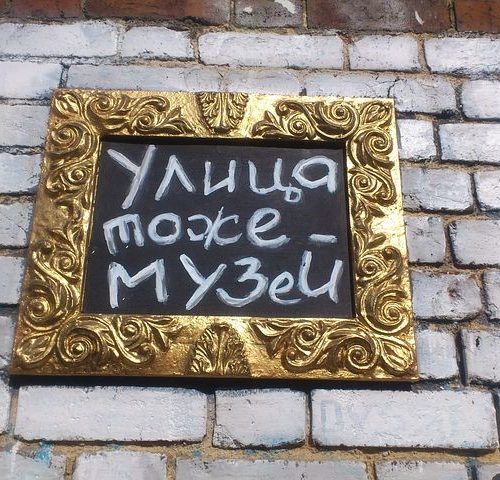 Улица
тоже -
музей